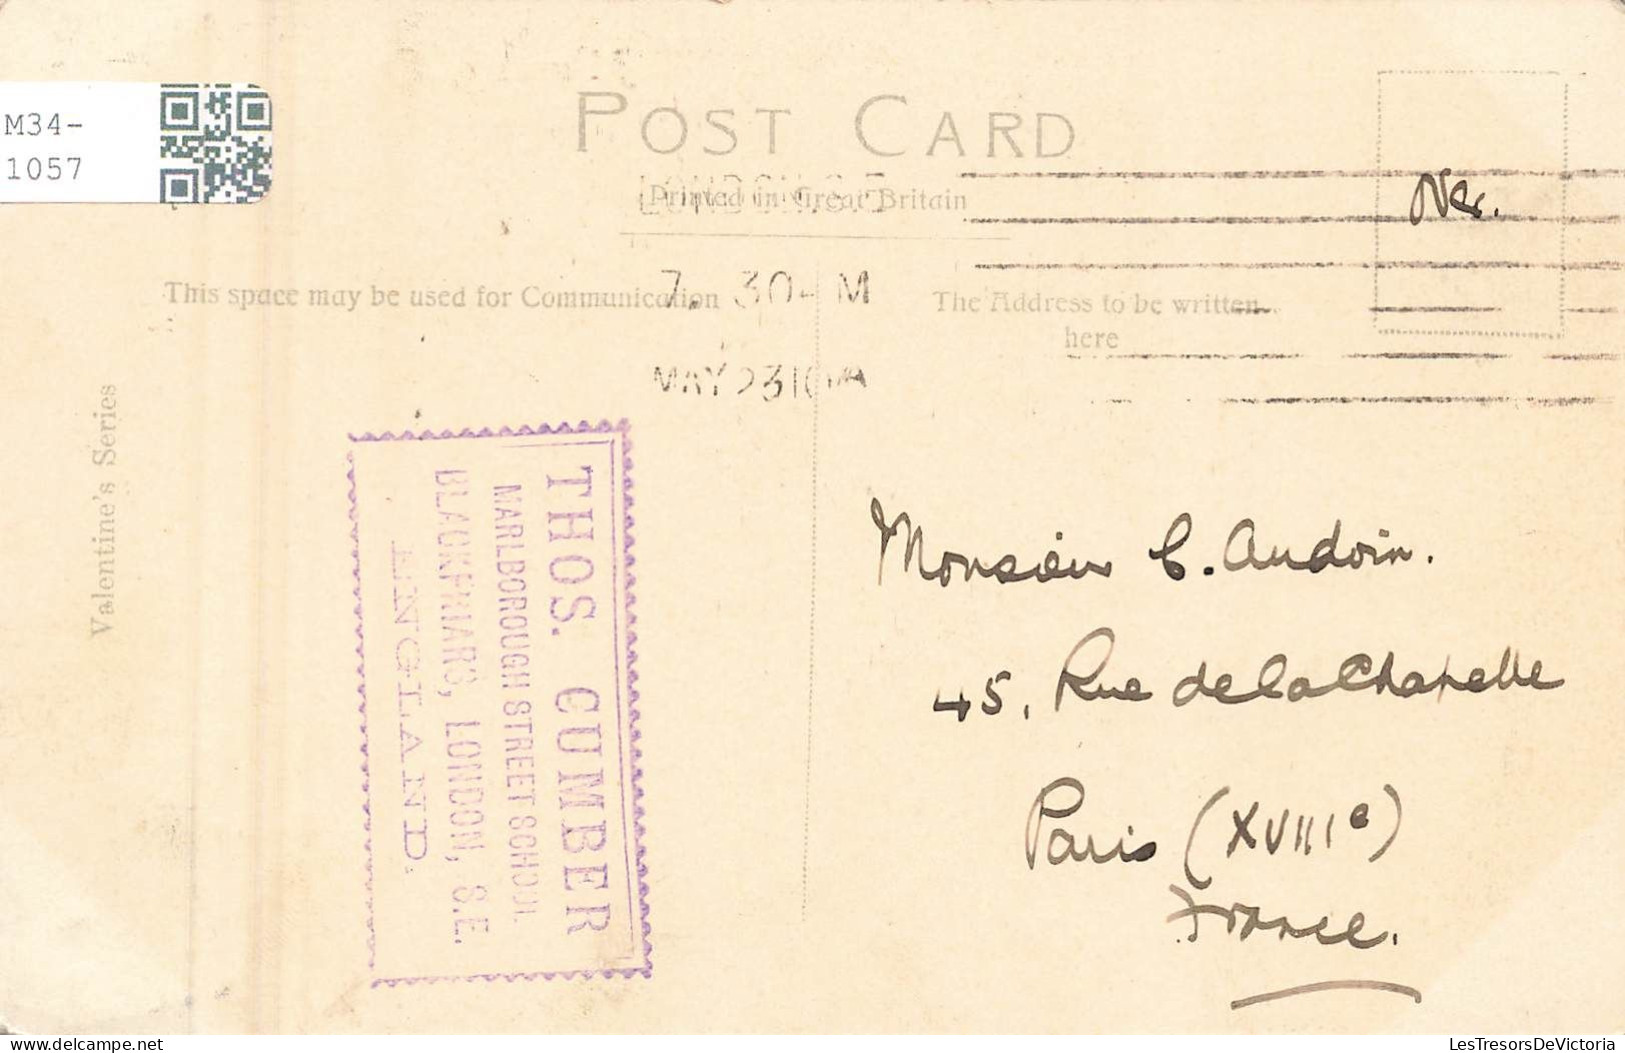 M34-
1057
POST CARD
LONDON. S.E
Printed in Great Britain
This space may be used for Communication
7. 30 M
MAY 23 10
The Address to be written
here
Valentine's Series
THOS. CUMBER
MARLBOROUGH STREET SCHOOL
BLACKFRIARS, LONDON, S.E.
ENGLAND.
Monsieur C. Audoin.
45, Rue de la Chapelle
Paris (XVIIIe)
France.
delcampe.net
LesTresorsDeVictoria